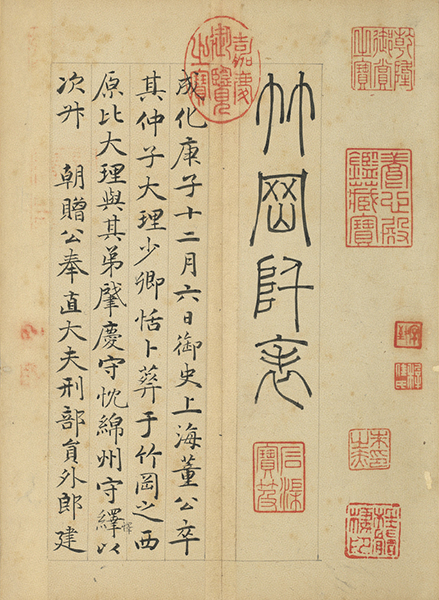 乾隆
御賞
之寶
養心殿
鑑藏寶
朱印
之赤
竹岡阡表
石渠
寶笈
嘉慶
御覽
之寶
成化庚子十二月六日御史上海董公卒
其仲子大理少卿恬卜葬于竹岡之西
原比大理與其弟肇慶守忱綿州守繹以
次升 朝贈公奉直大夫刑部員外郎建